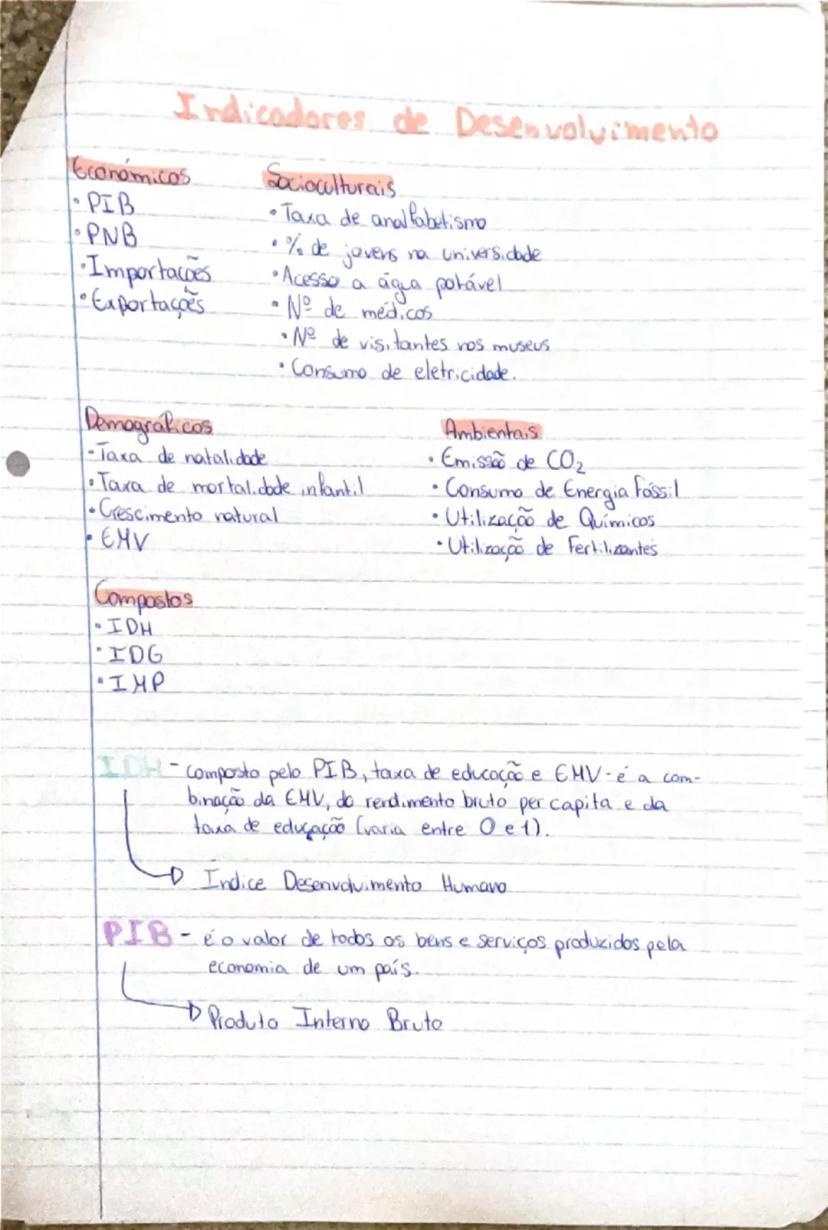 Indicadores de Desenvolvimento
Económicos
• PIB
• PNB
• Importações
• Exportações
Socioculturais
• Taxa de analfabetismo
• % de jovens na universidade
• Acesso a água potável
• Nº de médicos
• Nº de visitantes nos museus
• Consumo de eletricidade.
Demográficos
- Taxa de natalidade
• Taxa de mortalidade infantil
• Crescimento natural
• EMV
Ambientais
• Emissão de CO₂
• Consumo de Energia Fóssil
• Utilização de Químicos
• Utilização de Fertilizantes
Compostos
• IDH
• IDG
• IMP
IDH - composto pelo PIB, taxa de educação e EMV - é a com-
binação da EMV, do rendimento bruto per capita e da
taxa de educação (varia entre 0 e 1).
Índice Desenvolvimento Humano
PIB - é o valor de todos os bens e serviços produzidos pela
economia de um país.
Produto Interno Bruto